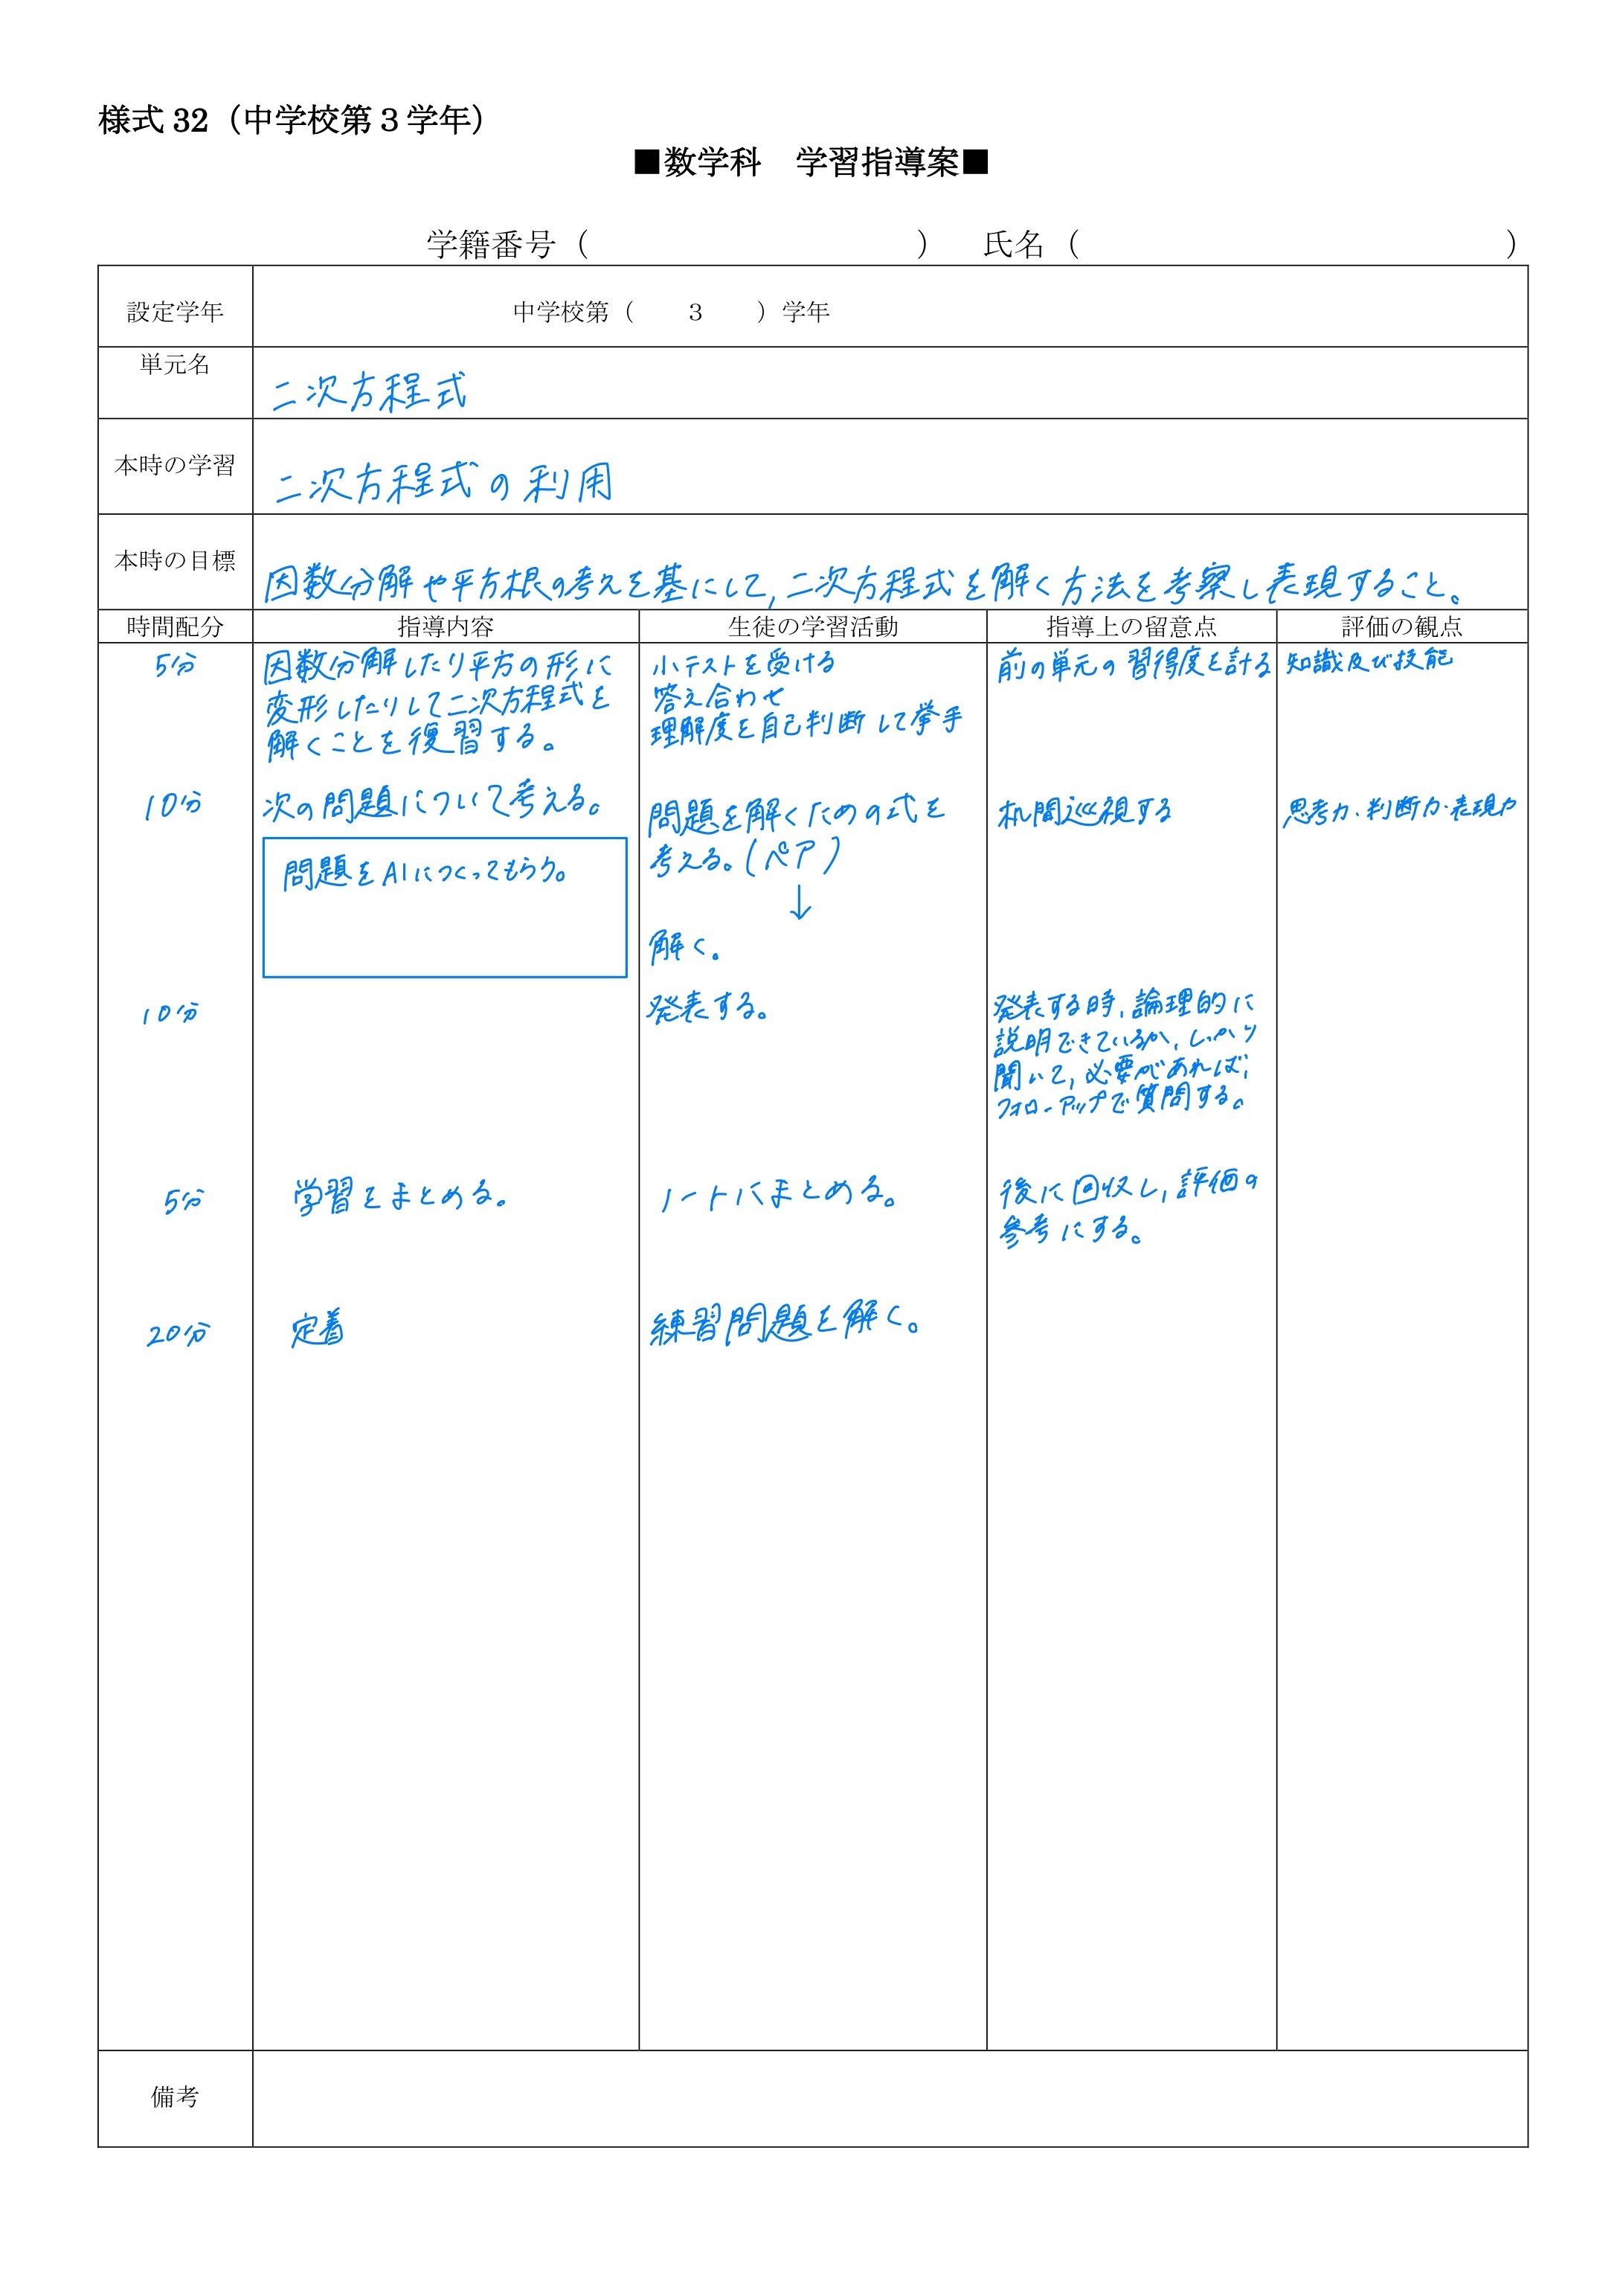 様式 32（中学校第３学年）
■数学科　学習指導案■
学籍番号（　　　　　　　　　　）　氏名（　　　　　　　　　　　　　）
設定学年
中学校第（　　３　　）学年
単元名
二次方程式
本時の学習
二次方程式の利用
本時の目標
因数分解や平方根の考えを基にして,二次方程式を解く方法を考察し表現すること。
時間配分　指導内容　生徒の学習活動　指導上の留意点　評価の観点
5分
因数分解したり平方の形に
変形したりして二次方程式を
解くことを復習する。
小テストを受ける
答え合わせ
理解度を自己判断して挙手
前の単元の習得度を計る
知識及び技能
10分
次の問題について考える。
問題をAIにつくってもらう。
問題を解くための式を
考える。(ペア)
↓
解く。
机間巡視する
思考力・判断力・表現力
10分
発表する。
発表する時,論理的に
説明できているか,しっかり
聞いて,必要があれば,
フォローアップで質問する。
5分
学習をまとめる。
ノートにまとめる。
後に回収し,評価の
参考にする。
20分
定着
練習問題を解く。
備考